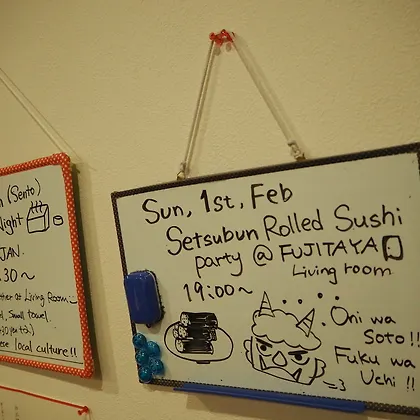 (Sento)
Night
JAN
30~
at Living Room
Small towel
local culture!!
Sun, 1st, Feb
Setsubun Rolled Sushi
party @ FUJITAYA
Living room
19:00~
Oni wa
Soto!!
Fuku wa
Uchi!!